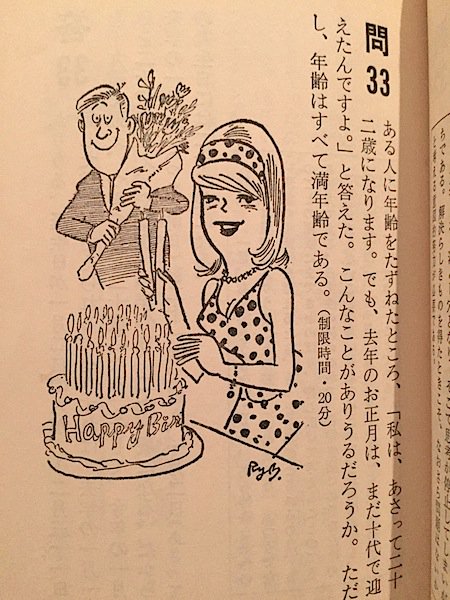 ちである。解決らしきものを得たときこそ、
問33
ある人に年齢をたずねたところ、「私は、あさって二十
二歳になります。でも、去年のお正月は、まだ十代で迎
えたんですよ。」と答えた。こんなことがありうるだろうか。ただ
し、年齢はすべて満年齢である。（制限時間・20分）
Happy Bir